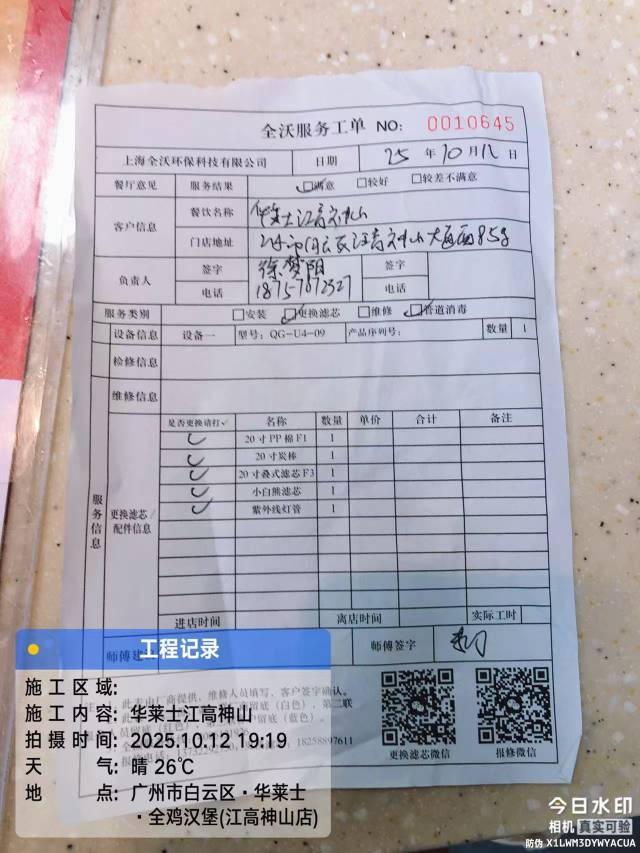 全沃服务工单 NO: 0010645
上海全沃环保科技有限公司 日期 25 年 10 月 12 日
餐厅意见 服务结果 满意 较好 较差不满意
客户信息 餐饮名称 华莱士江高神山
门店地址 江高神山大道西858
负责人 签字 徐梦阳 签字
电话 电话
服务类别 安装 更换滤芯 维修 管道消毒
设备信息 设备一 型号: QG-U4-09 产品序列号: 数量 1
检修信息
维修信息
服务信息
更换滤芯/配件信息
是否更换请打✓ 名称 数量 单价 合计 备注
✓ 20寸PP棉F1 1
✓ 20寸炭棒 1
✓ 20寸叠式滤芯F3 1
✓ 小白熊滤芯 1
✓ 紫外线灯管 1
进店时间 离店时间 实际工时
师傅建 师傅签字
更换滤芯微信 报修微信
18258897611
工程记录
施工区域:
施工内容: 华莱士江高神山
拍摄时间: 2025.10.12 19:19
天气: 晴 26℃
地点: 广州市白云区·华莱士
·全鸡汉堡(江高神山店)
今日水印
相机 真实可验
防伪 X1LWM3DYWYACUA